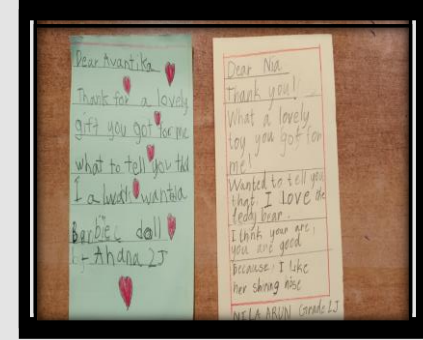 Dear Avantika
Thank for a lovely
gift you got for me
what to tell you that
I a wantla
Barbiec doll
- Ahana 2J
Dear Nia
Thank you!
What a lovely
toy you got for
me!
Wanted to tell you
that, I LOVE the
teddy bear.
I think your are,
you are good
because, I like
her shining nose
NILA ARUN Grade 2J